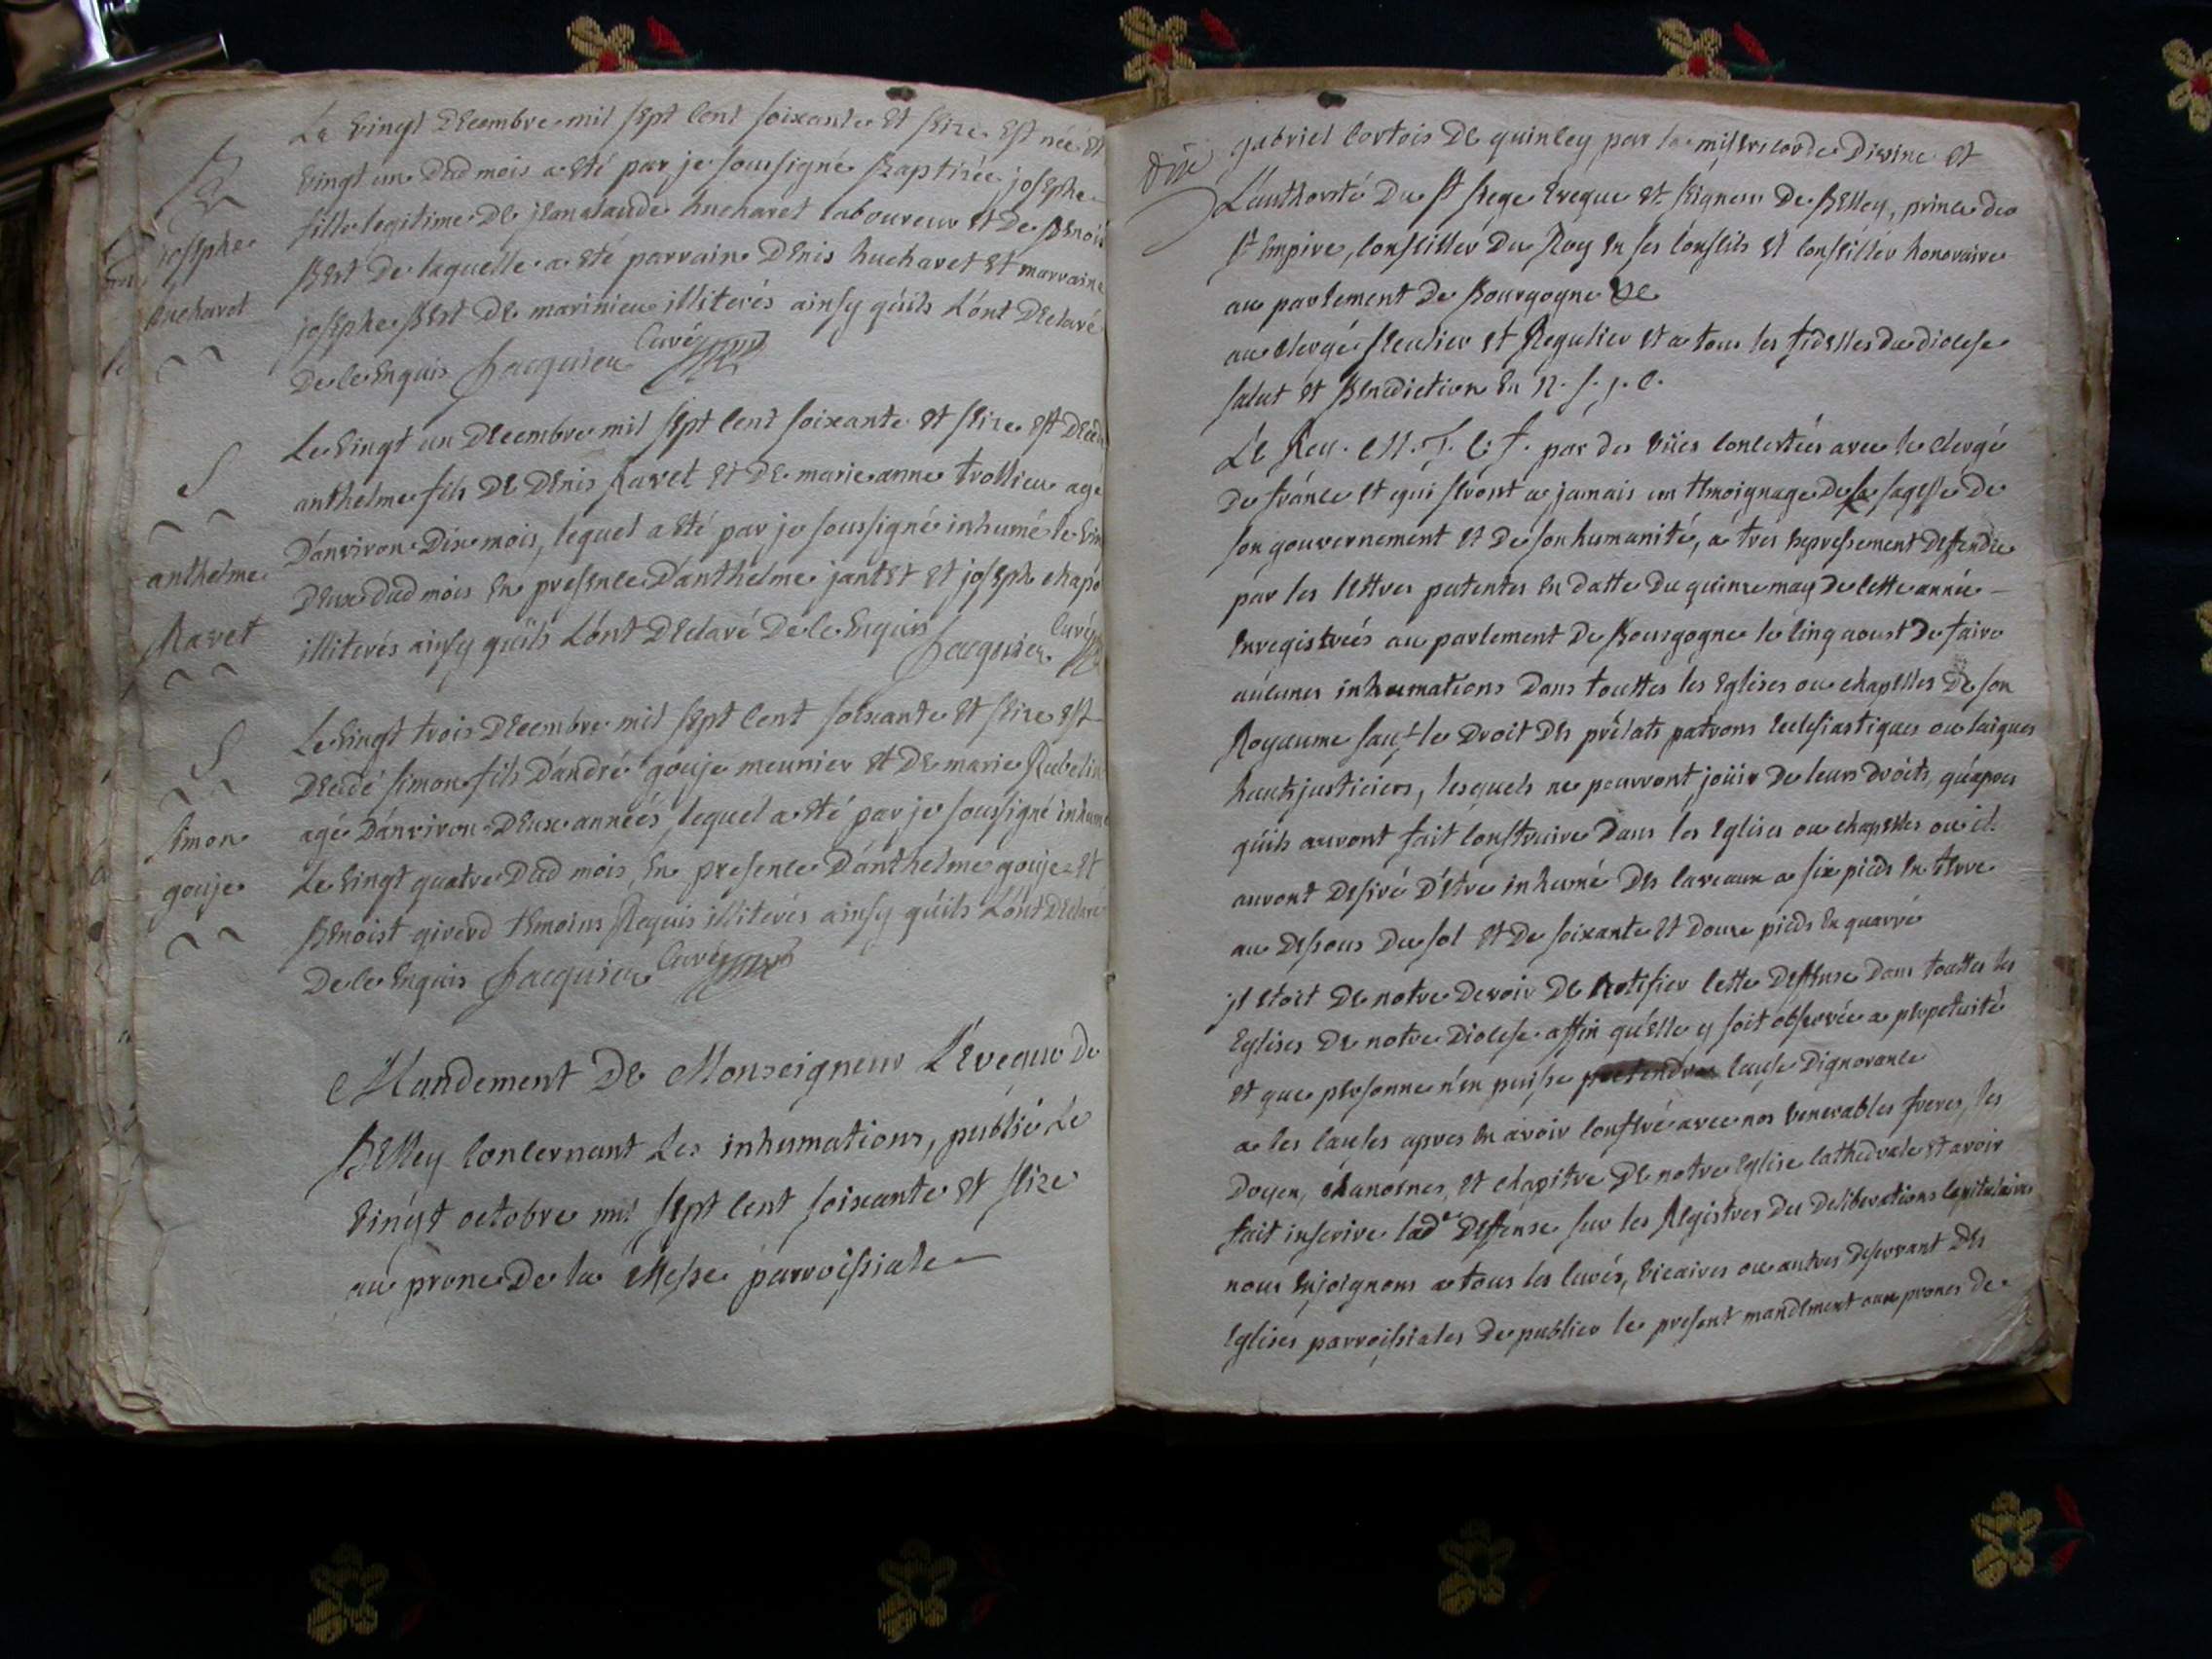 Le vingt decembre mil sept cent soixante et seize est née et
B
vingt un dud mois a eté par je soussigné Baptisée josephe
josephe
fille legitime de jean claude hucharet laboureur et de Benoi
Best de laquelle a eté parrain denis hucharet et marraine
hucharet
josephe Best de marinieu illiterés ainsy qu'ils l'ont declaré
de ce enquis Jacquier Curé
Le vingt un decembre mil sept cent soixante et seize est decedé
S
anthelme fils de denis Ravet et de marie anne trollieu agé
d'anviron dix mois, lequel a eté par je soussigné inhumé le vin
anthelme
deux dud mois en presence d'anthelme jantet et joseph chapo
Ravet
illiterés ainsy qu'ils l'ont declaré de ce enquis Jacquier Curé
Le vingt trois decembre mil sept cent soixante et seize est
S
decedé simon fils d'andré gouje meunier et de marie Rubelin
simon
agé d'anviron deux années, lequel a eté par je soussigné inhumé
gouje
Le vingt quatre dud mois, en presence d'anthelme gouje et
Benoist girerd temoins Requis illiterés ainsy qu'ils l'ont declaré
de ce enquis Jacquier Curé
Mandement de Monseigneur L'eveque de
Belley concernant Les inhumations, publié Le
vingt octobre mil sept cent soixante et seize
au prone de la Messe parroissiale
gabriel cortois de quincey par la misericorde divine et
L'authorité du st siege eveque et seigneur de Belley, prince du
st empire, conseiller du Roy en ses conseils et conseiller honoraire
au parlement de Bourgogne &c
au clergé seculier et Regulier et a tous les fidelles du diocese
salut et Benediction en N. s. j. c.
Le Roy. M. T. C. f. par des vües concertées avec le clergé
de france et qui seront a jamais un temoignage de la sagesse de
son gouvernement et de son humanité, a tres expressement deffendu
par les lettres patentes en datte du quinze may de cette année
enregistrées au parlement de Bourgogne le cinq aoust de faire
aucunes inhumations dans touttes les eglises ou chapelles de son
Royaume sauf le droit des prélats patrons ecclesiastiques ou laiques
hauts justiciers, lesquels ne pourront joüir de leurs droits, qu'apres
qu'ils auront fait construire dans les eglises ou chapelles ou il
auront desiré d'être inhumé des caveaux a six pieds en terre
au dessous du sol et de soixante et douze pieds en quarré
jl etoit de notre devoir de Notifier cette deffense dans touttes les
eglises de notre diocese affin qu'elle y soit observée a perpetuité
et que personne n'en puisse pretendre cause dignorance
a ces causes apres en avoir conferé avec nos venerables freres, les
doyen, chanoines, et chapitre de notre eglise cathedrale et avoir
fait inscrire lad.e deffense sur les Registres des deliberations capitulaires
nous enjoignons a tous les curés, vicaires ou autres deservant des
eglises parroissiales de publier le present mandement aux prones de